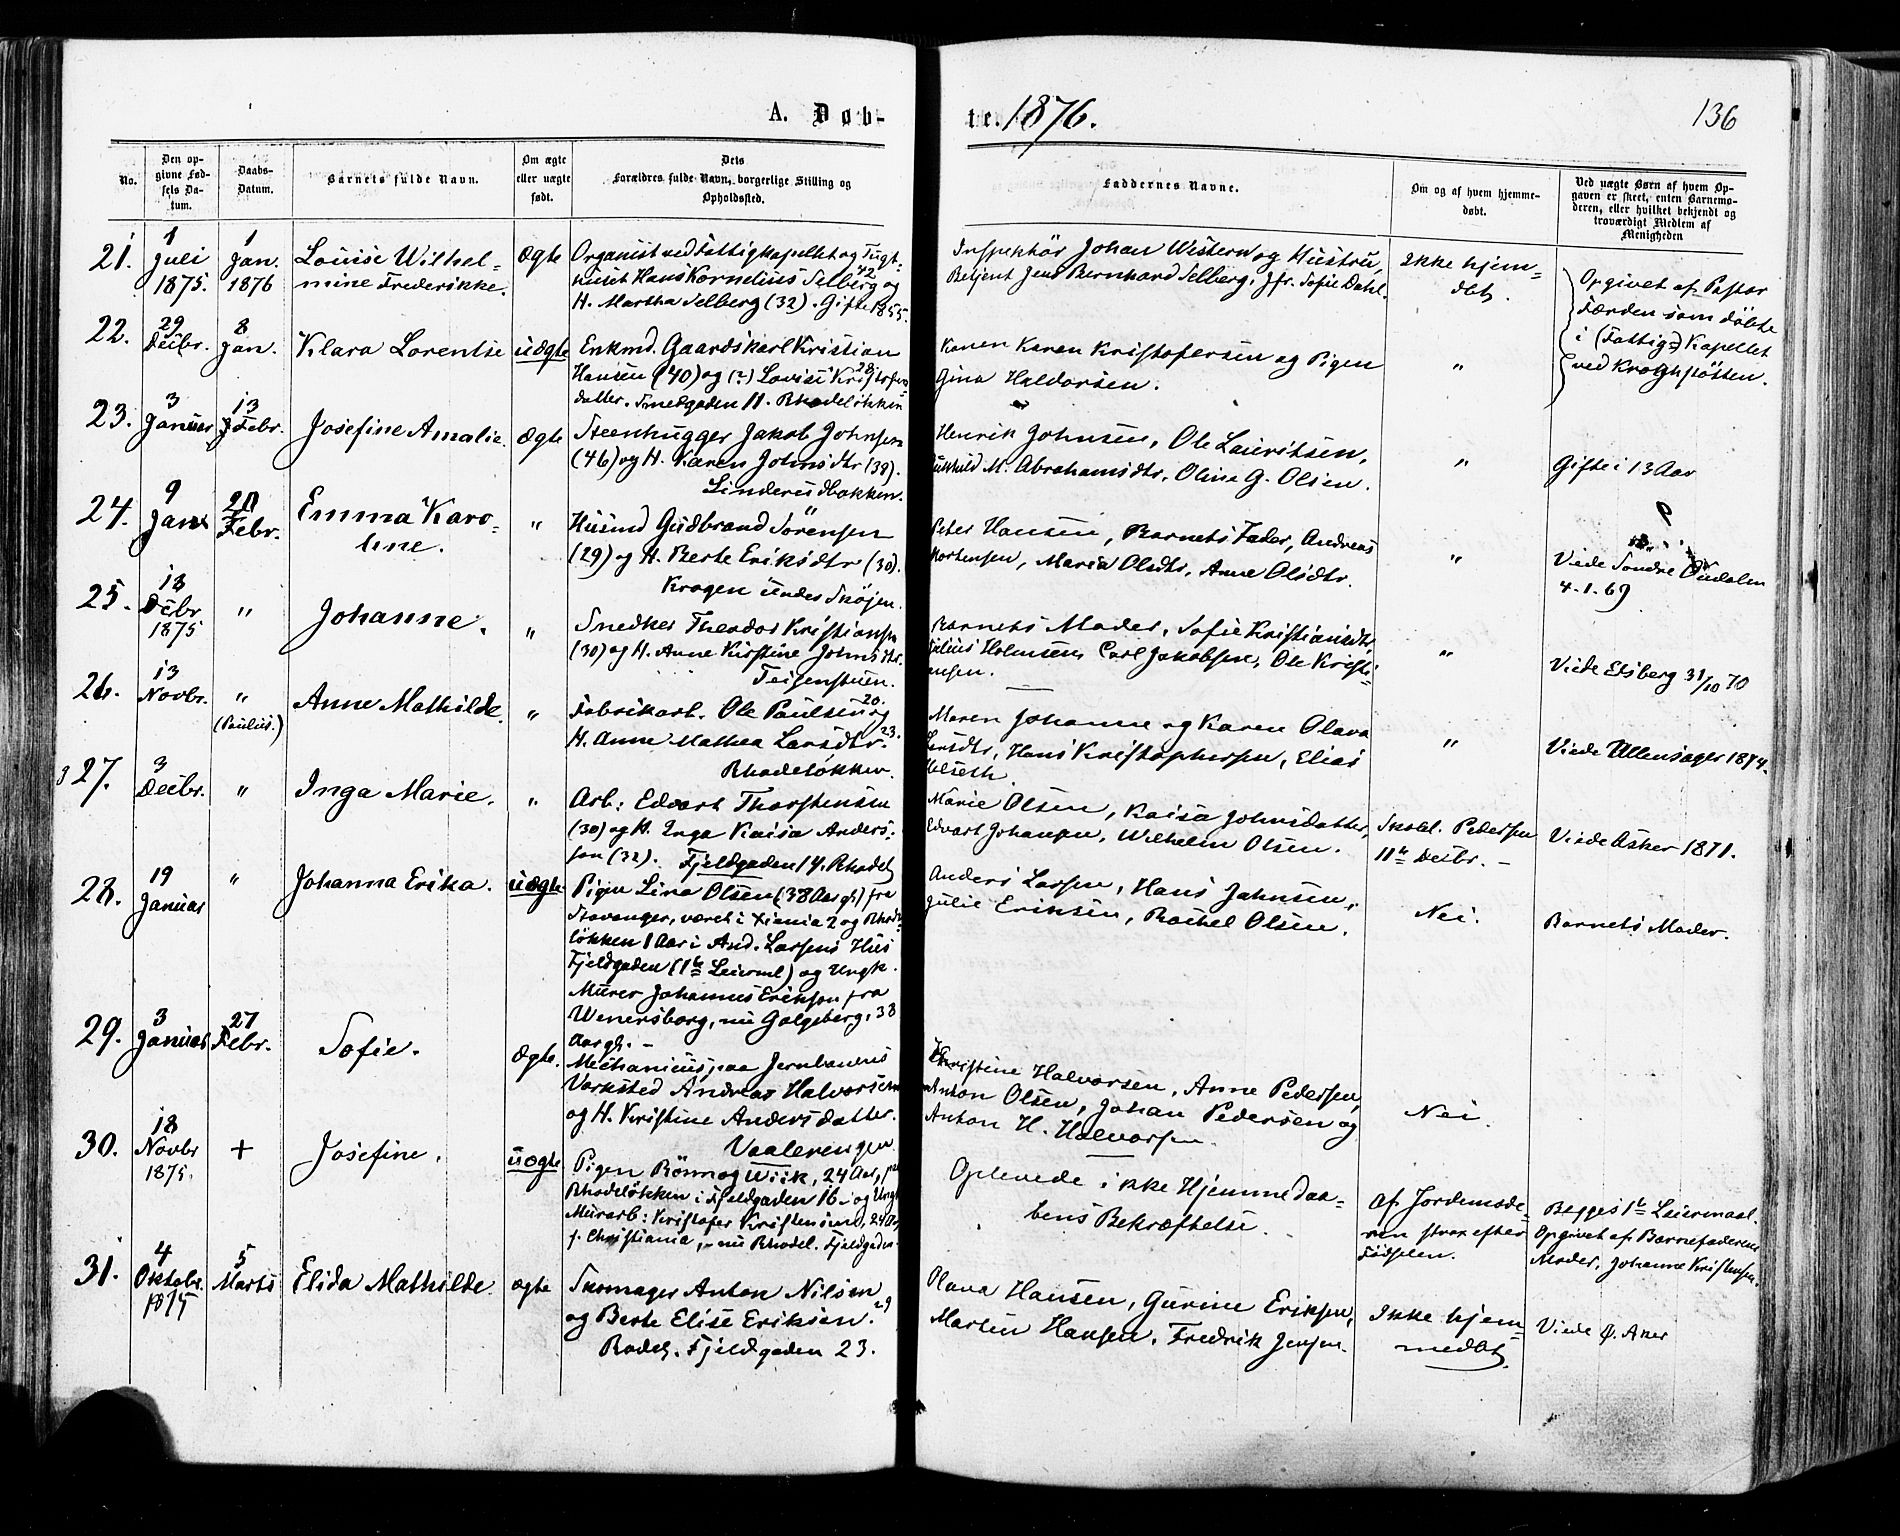 A. Døb-
te. 1876.
136
No.
Den op-
givne Fød-
sels Da-
tum.
Daabs-
Datum.
Barnets fulde Navn.
Om ægte
eller uægte
født.
Dets
Forældres fulde Navn, borgerlige Stilling og
Opholdssted.
Faddernes Navne.
Om og af hvem hjemme-
døbt.
Ved uægte Børn af hvem Op-
gaven er skeet, enten Barnemo-
deren, eller hvilket bekjendt og
troværdigt Medlem af
Menigheden
21.
1
Juli
1875.
1
Jan.
1876
Louise Wilhel-
mine Frederikke.
Ægte
Organist ved Fattigkapellet og Tugt-
huset Hans Kornelius Selberg 42 og
H. Martha Selberg (32). Gifte 1855.
Inspektör Johan Western og Hustru,
Betjent Jens Bernhard Selberg, Jfr. Sofie Dahl.
Ikke hjem-
dbt.
Opgivet af Pastor
Færden som döbte
i (Fattig-) Kapellet
ved Kroghstötten.
22.
29
Decbr.
8
Jan.
Klara Lorentse
uægte
Enkmd. Gaardskarl Kristian
Hansen (40) og (?) Lovise Kristofers 28
datter. Smedgaden 11. Rhodelökken
Konen Karen Kristofersen og Pigen
Gina Haldorsen.
"
23.
3
Januar
13
Febr.
Josefine Amalie.
Ægte
Steenhugger Jakob Johnsen
(46) og H. Karen Johnsdtr (38).
Linderudbakken.
Henrik Johnsen, Ole Lauritsen,
M. Abrahamsdtr, Oline G. Olsen.
"
Gifte i 13 Aar
24.
9
Jan
20
Febr.
Emma Karo-
line.
"
Husmd Gudbrand Sörensen
(29) og H. Berte Eriksdtr (30).
Krogen under Skøjen.
Peter Hansen, Barnets Fader, Andreas
Mortensen, Maria Olsdtr, Anne Olsdtr.
"
Viede Söndre Oudalen
4.1.69
25.
18
Decbr
1875
"
Johanne.
"
Snedker Theodor Kristiansen
(30) og H. Anne Kirstine Johnsdtr.
Teisenstuen.
Barnets Moder, Sofie Kristiansdtr,
Julius Holmsen, Carl Jakobsen, Ole Kristi-
ansen.
"
Viede Edsberg 31/10 70
26.
13
Novbr.
"
(Paulus.)
Anne Mathilde.
"
Fabrikarb. Ole Paulsen 20. og
H. Anne Mathea Larsdtr. 23.
Rhodeløkken.
Maren Johanne og Karen Olava
Larsdtr, Hans Kristophersen, Elias
Holseth.
"
Viede Ullensager 1874.
27.
3
Decbr.
"
Inga Marie.
"
Arb: Edvart Thorstensen
(30) og H. Inga Kaisa Anders-
son (32). Fjeldgaden 14. Rhodel
Marie Olsen, Kaisa Johnsdatter,
Edvart Johansen, Wilhelm Olsen.
Skobl. Pedersen
11te Decbr.
Viede Asker 1871.
28.
19
Januar
"
Johanna Erika.
uægte
Pigen Lina Olsen (38 Aar gl) fra
Stavanger, været i Xiania 2 og Rhode-
løkken 1 Aar i And. Larsens Hus
Fjeldgaden (1te Leierml) og Ungk.
Murer Johannes Erikson fra
Wenersborg, nu Galgeberg, 38
Aar gl.
Anders Larsen, Hans Johnsen,
Julie Eriksen, Rachel Olsen.
Nei.
Barnets Moder.
29.
3
Januar
27
Febr.
Sofie.
Ægte.
Mechanicus paa Jernbanens
Værksted Andreas Halvorsen
og H. Kristine Andersdatter.
Vaalerengen
Kristine Halvorsen, Anne Pedersen,
Anton Olsen, Johan Pedersen og
Anton H. Halvorsen.
Nei.
30.
18
Novbr
1875.
+
Josefine.
uægte
Pigen Rönnog Wiik, 24 Aar, paa
Rhodelökken i Fjeldgaden 16 og Ungk
Murarb: Kristofer Kristensen, 24 Aar
f. Christiania, nu Rhodel. Fjeldgaden
Oplevede ikke Hjemmedaa-
bens Bekræftelse.
Af Jordemode-
ren strax efter
Födselen.
Begges 1te Leiermaal.
Opgivet af Barnefaderens
Moder, Johanne Kristensen.
31.
4
Oktobr.
1875
5
Marts
Elida Mathilde.
ægte
Skomager Anton Nilsen
og Berte Elise Eriksen. 29
Rodel. Fjeldgaden 23.
Olava Hansen, Gurine Eriksen,
Martin Hansen, Fredrik Jensen.
Ikke hjem-
medbt.
Viede Ø. Aker